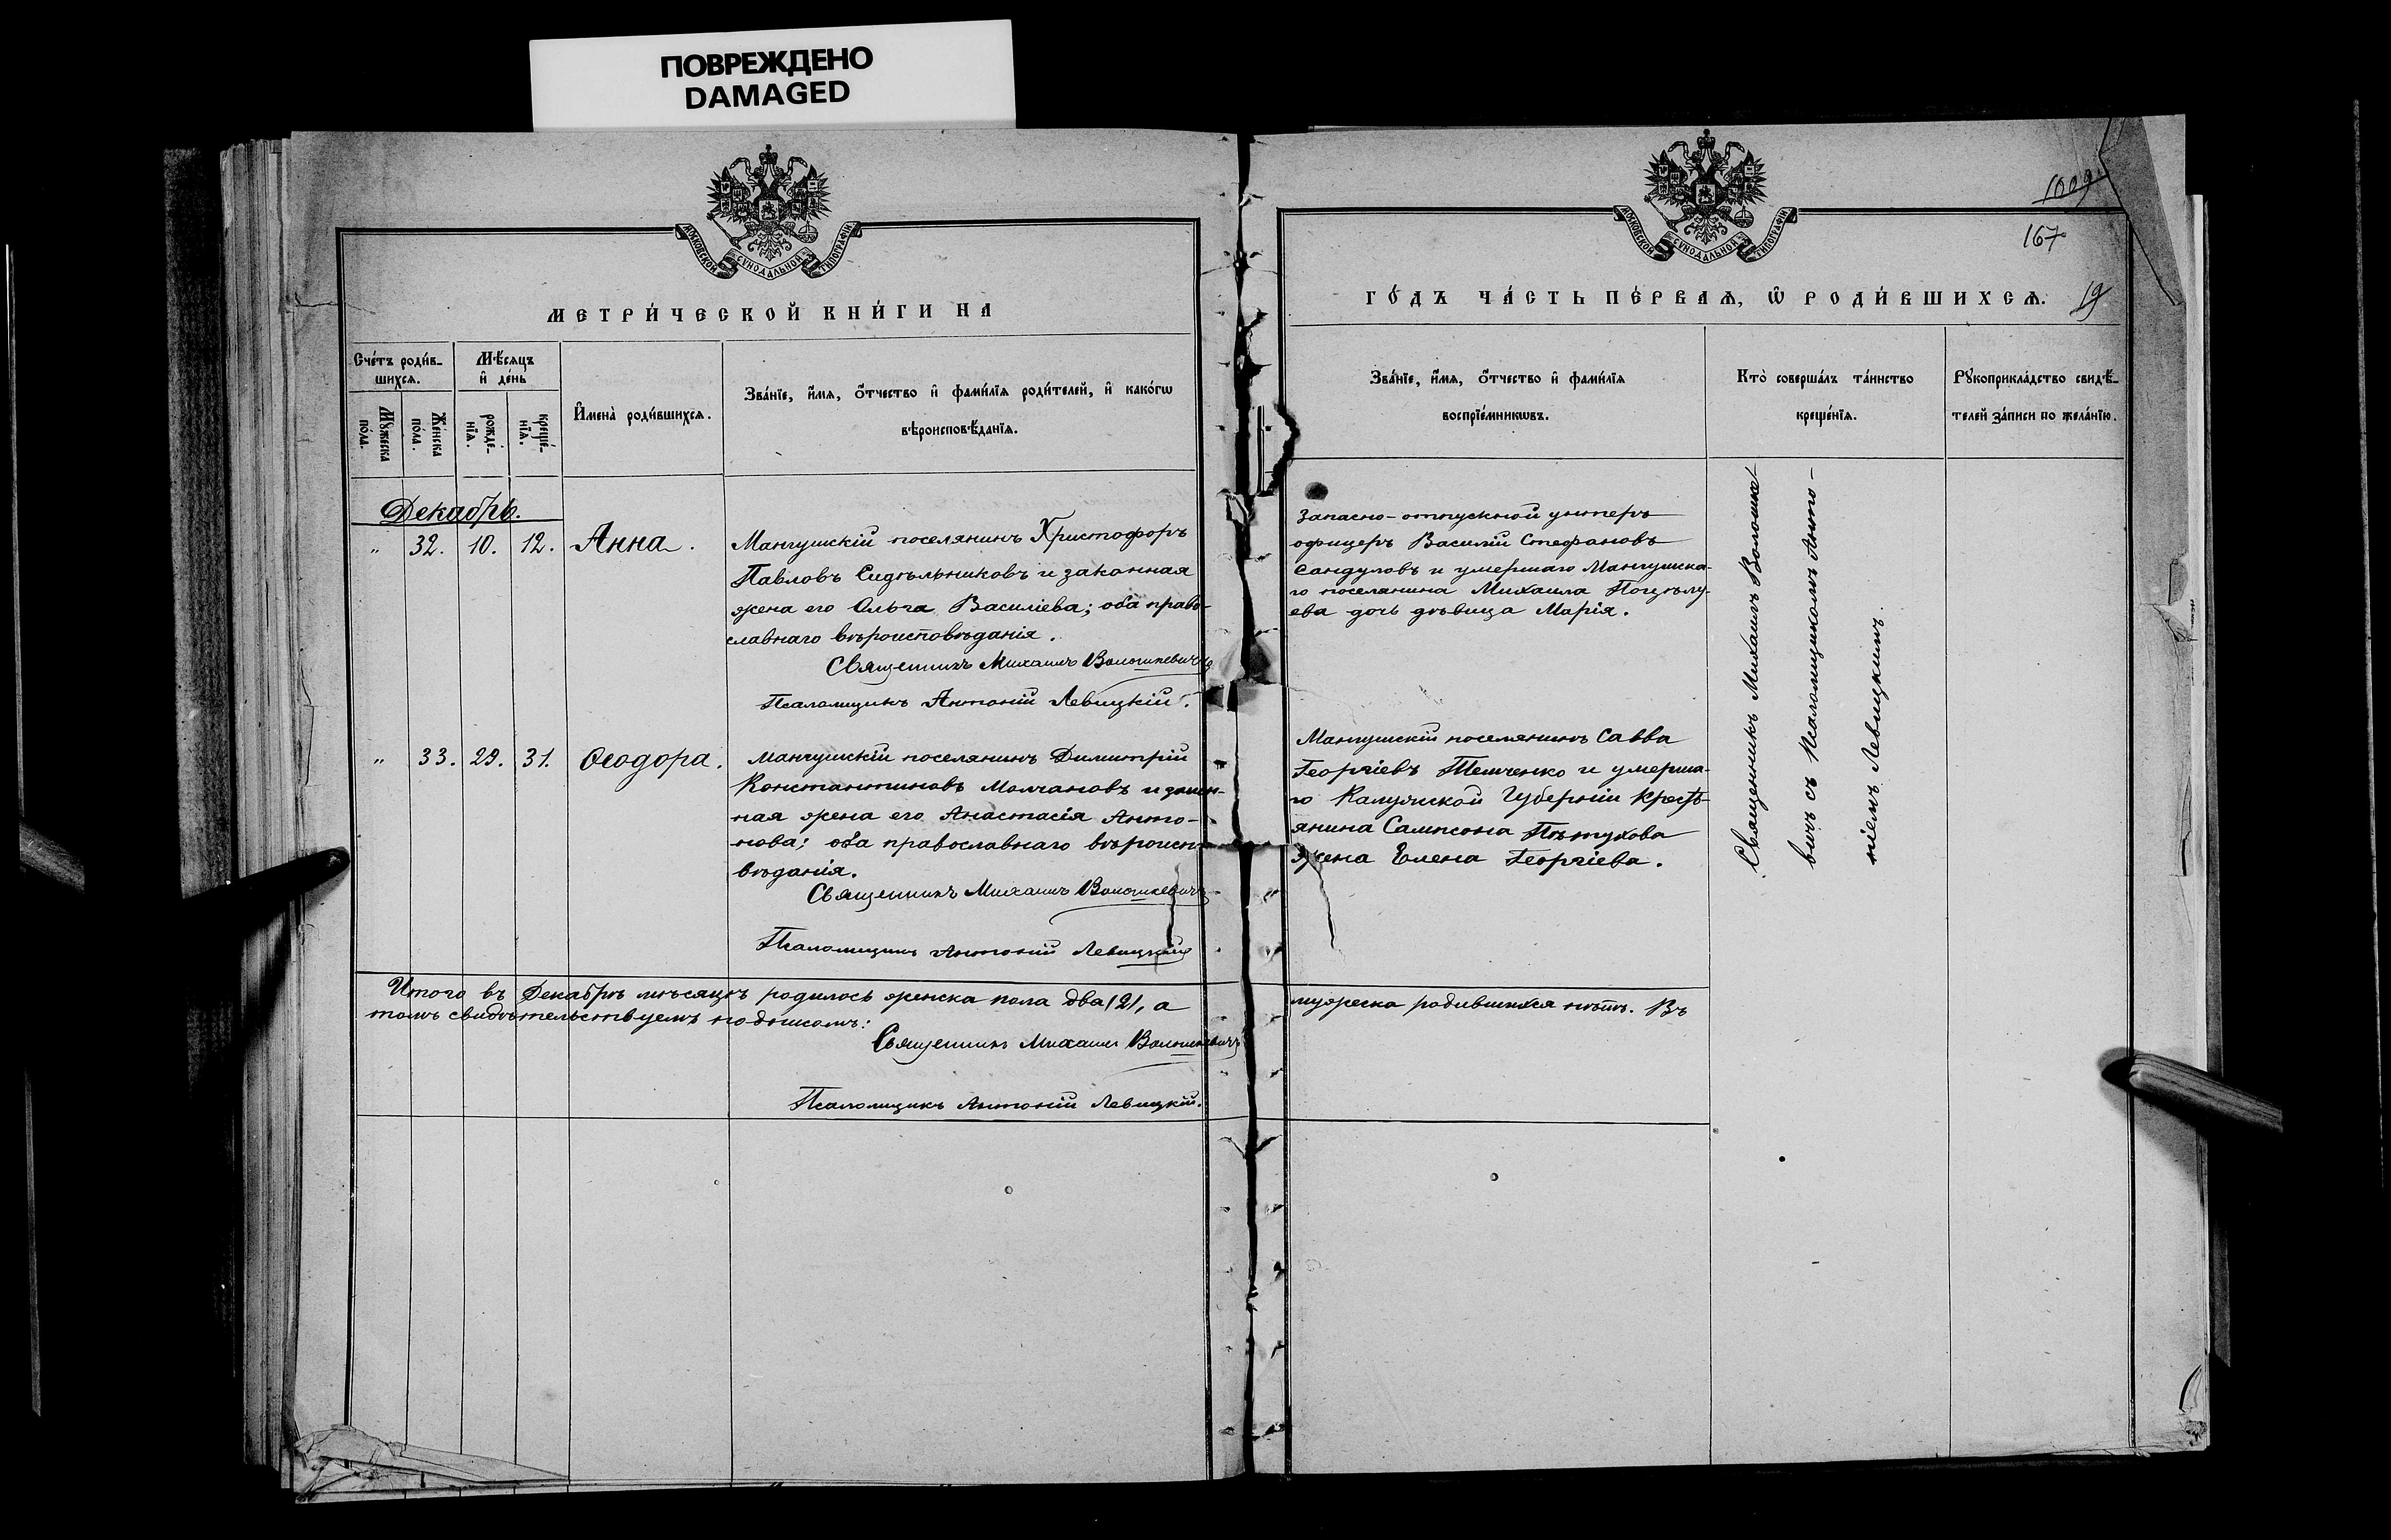 ПОВРЕЖДЕНО
DAMAGED
МОСКОВСКОЙ СѴНОДАЛЬНОЙ ТИПОГРАФІИ
МЕТРИ́ЧЕСКОЙ КНИ́ГИ НА
Сче́тъ роди́в-
шихсѧ.
Мѣ́сяцъ
и҆ де́нь
Мꙋ́жеска
по́ла.
Же́нска
по́ла.
рожде́-
нїѧ.
креще́-
нїѧ.
И҆мена̀ роди́вшихсѧ.
Зва́нїе, и҆́мѧ, ѻ҆́тчество и҆ фами́лїѧ роди́телей, и҆ како́гѡ
вѣроисповѣ́данїѧ.
Декабрь.
„ 32. 10. 12. Анна.
Мангушскій поселянинъ Христофоръ
Павловъ Сидѣльниковъ и законная
жена его Ольга Василіева; оба право-
славнаго вѣроисповѣданія.
Священникъ Михаилъ Волошкевичъ
Псаломщикъ Антоній Левицкій.
„ 33. 29. 31. Ѳеодора.
Мангушскій поселянинъ Димитрій
Константиновъ Молчановъ и закон-
ная жена его Анастасія Анто-
нова; оба православнаго вѣроиспо-
вѣданія.
Священникъ Михаилъ Волошкевичъ
Псаломщикъ Антоній Левицкій
Итого въ Декабрѣ мѣсяцѣ родилось женска пола два /2/, а
томъ свидѣтельствуемъ подписомъ:
Священникъ Михаилъ Волошкевичъ
Псаломщикъ Антоній Левицкій.
МОСКОВСКОЙ СѴНОДАЛЬНОЙ ТИПОГРАФІИ
1009
167
ГО́ДЪ ЧА́СТЬ ПЕ́РВАѦ, Ѡ҆ РОДИ́ВШИХСѦ.
19
Зва́нїе, и҆́мѧ, ѻ҆́тчество и҆ фами́лїѧ
воспрїе́мникѡвъ.
Кто̀ соверша́лъ та́инство
креще́нїѧ.
Рꙋкоприкла́дство свидѣ́-
телей за́писи по жела́нїю.
Запасно-отпускной унтеръ
офицеръ Василій Стефановъ
Сандуловъ и умершаго Мангушска-
го поселянина Михаила Поцѣлу-
ева дочь дѣвица Марія.
Мангушскій поселянинъ Савва
Георгіевъ Темченко и умерша-
го Калужской Губерніи кресть-
янина Сампсона Пѣтухова
жена Елена Георгіева.
мужеска родившихся нѣтъ. Въ
Священникъ Михаилъ Волошке-
вичъ съ Псаломщикомъ Анто-
ніемъ Левицкимъ.